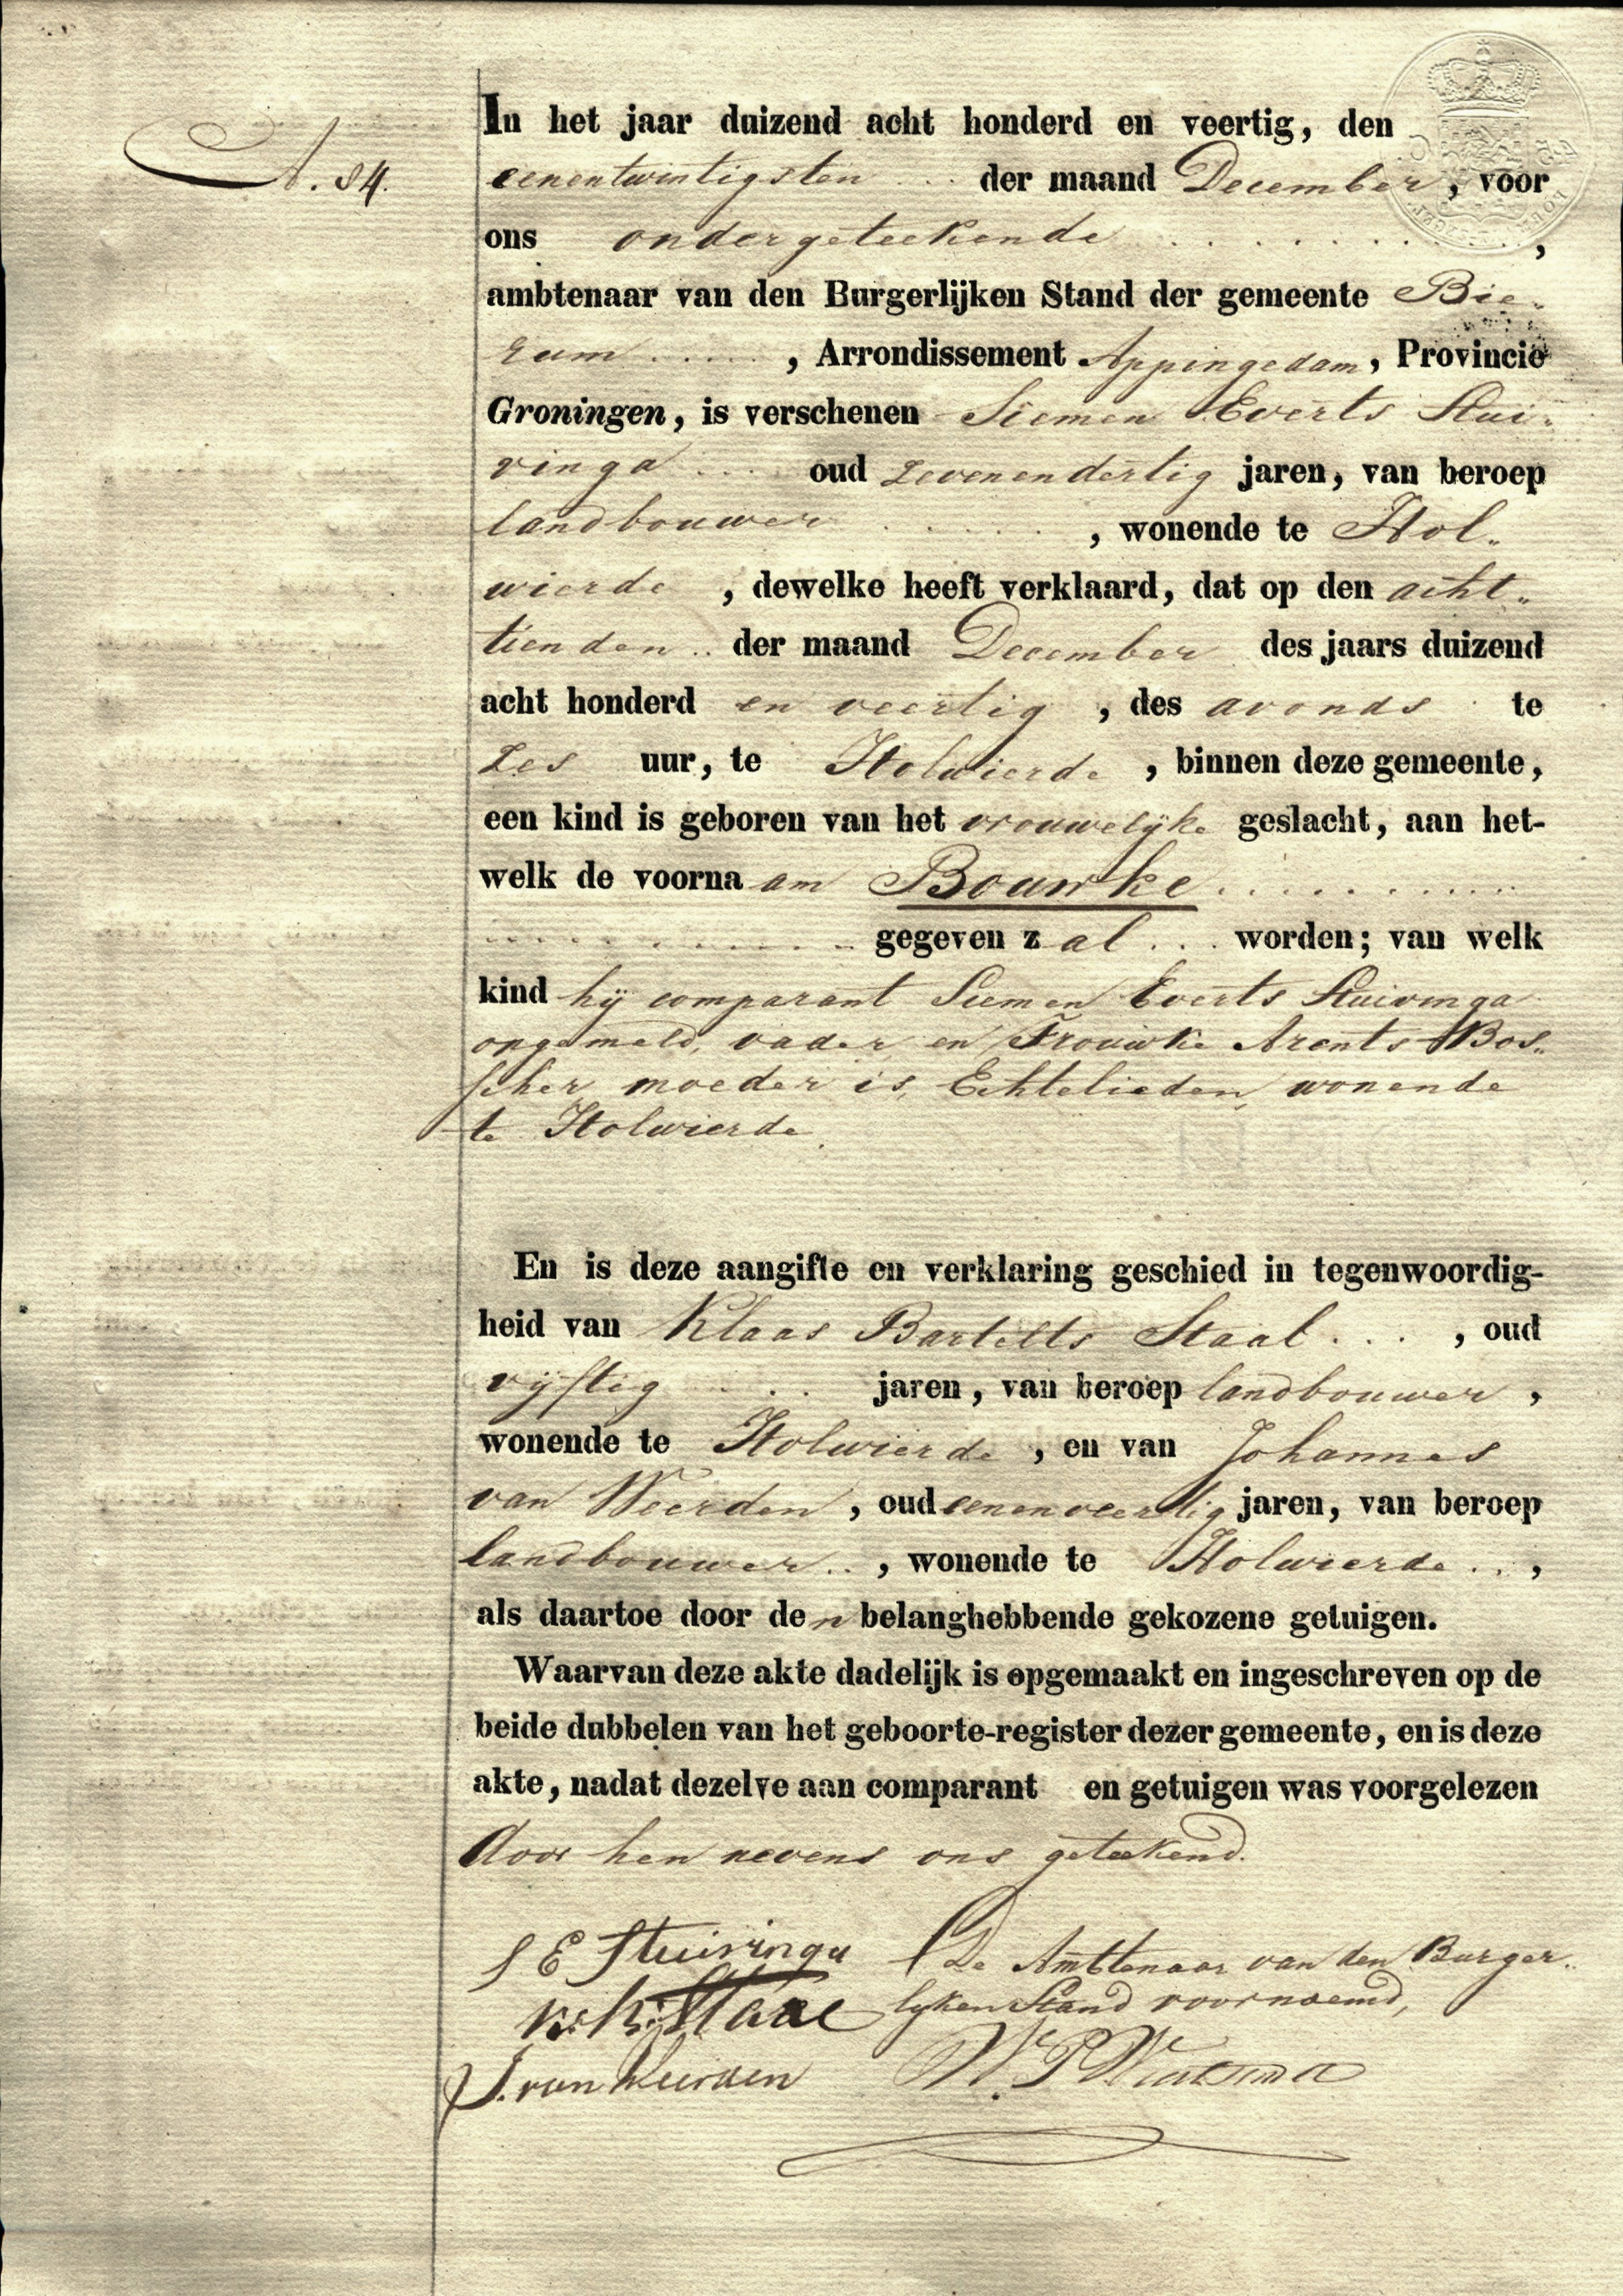 In het jaar duizend acht honderd en veertig, den
A. 84.
eenentwintigsten .. der maand December, voor
ons ondergeteekende . . . . . . . ,
ambtenaar van den Burgerlijken Stand der gemeente Bie-
rum ..... , Arrondissement Appingedam, Provincie
Groningen, is verschenen Siemen Everts Stui-
vinga ... oud zevenendertig jaren, van beroep
landbouwer . . . . , wonende te Hol-
wierde , dewelke heeft verklaard, dat op den acht-
tienden .. der maand December des jaars duizend
acht honderd en veertig , des avonds te
zes uur, te Holwierde , binnen deze gemeente,
een kind is geboren van het vrouwelijke geslacht, aan het-
welk de voornaam Bouwke . . . . . . . . . .
. . . . . . . . . . gegeven zal . . . worden; van welk
kind hij comparant Siemen Everts Stuivinga
opgemeld, vader en Trouwke Arents Bos-
scher moeder is, Echtelieden, wonende
te Holwierde.
En is deze aangifte en verklaring geschied in tegenwoordig-
heid van Klaas Bartelts Staal . . . , oud
vijftig . . . jaren, van beroep landbouwer ,
wonende te Holwierde , en van Johannes
van Weerden , oud eenenveertig jaren, van beroep
landbouwer .. , wonende te Holwierde .. ,
als daartoe door den belanghebbende gekozene getuigen.
Waarvan deze akte dadelijk is opgemaakt en ingeschreven op de
beide dubbelen van het geboorte-register dezer gemeente, en is deze
akte, nadat dezelve aan comparant en getuigen was voorgelezen
door hen nevens ons geteekend.
S E Stuivinga De Ambtenaar van den Burger-
Staal lijken Stand voornoemd,
J. van Weerden W. P.